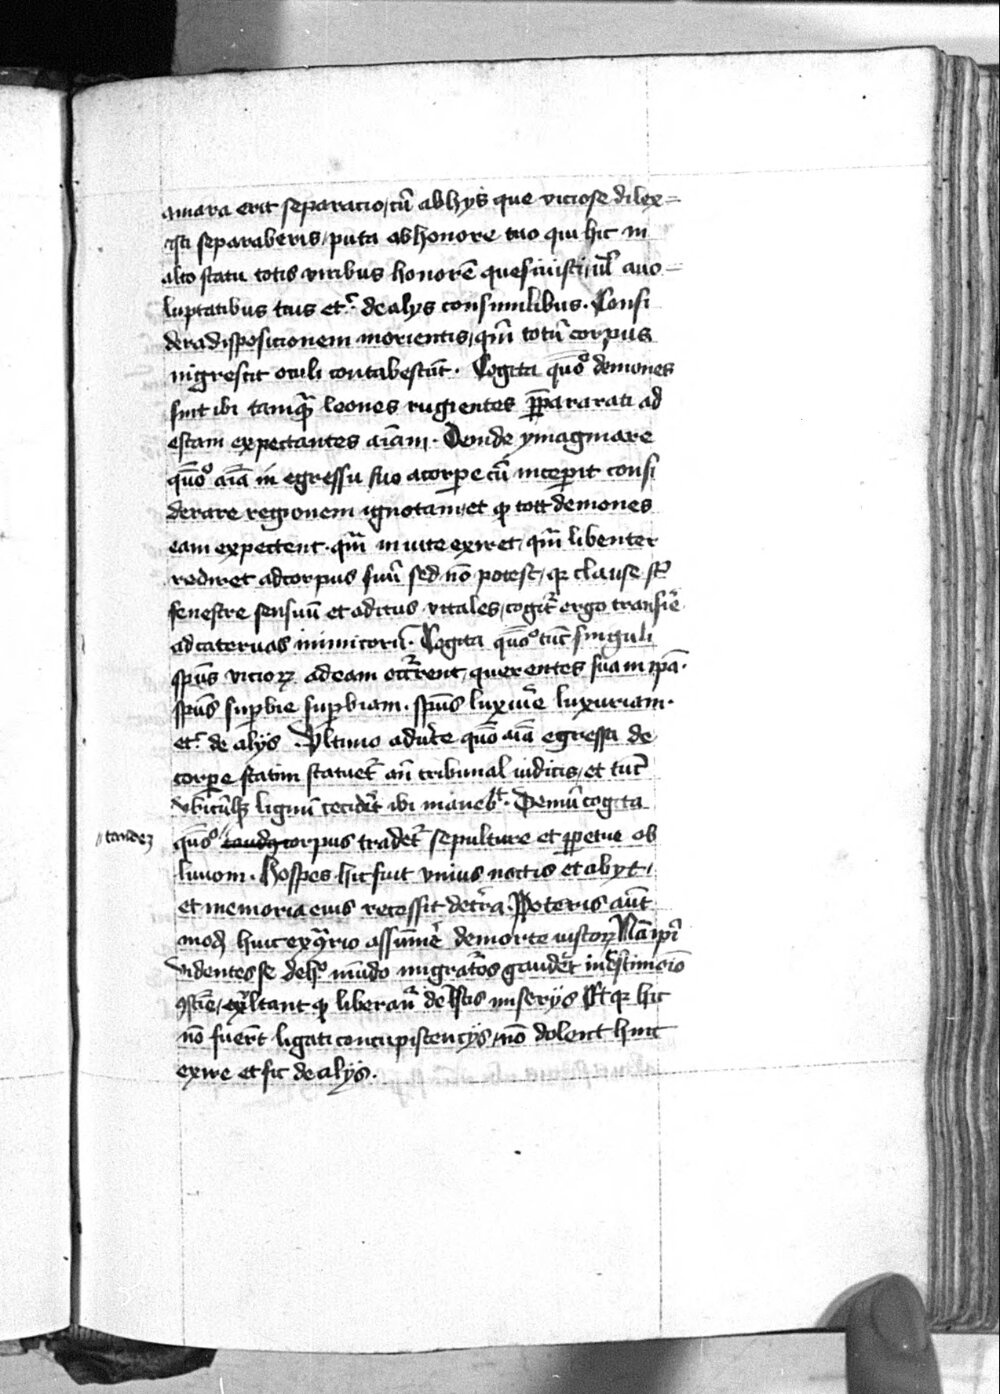 amara erit separacio, cū ab hijs que viciose dilex=
isti separaberis, puta ab honore tuo qui hic in
alto statu totis viribus honorē quesiuisti, ul̄ a vo=
luptatibus tuis etc̄. de alijs consimilibus. Consi
dera disposicionem morientis, qūo totū corpus
nigrescit oculi contabescūt. Cogita quōo demones
sint ibi tamqā leones rugientes p̄pararati ad
escam expectantes aīam. Deinde ymaginare
quōo aīa in egressu suo a corpe cū inceperit consi
derare regionem ignotam, et qꝫ tot demones
eam expectent. qm̄ inuite exiret, qm̄ libenter
rediret ad corpus suū sed nō potest, qꝛ clause st̄
fenestre sensuū et aditus vitales, cogit̄ ergo transire
ad cateruas inimicorū. Cogita quōo tūc singuli
spūs vicioꝝ ad eam occ̄rrent, querentes suam ip̄a.
spūs supbie supbiam. spūs luxurie luxuriam.
etc̄. de alijs. Vltimo aduerte quōo aīa egressa de
corpe statim statuet̄ an̄ tribunal iudicis, et tūc
vbicūqꝫ lignū cecidit̄ ibi manebt̄. Demū cogita
// tandeꝫ quōo // tandꝫ corpus tradet̄ sepulture et ꝑpetue ob
liuioni. Hospes hic fuit vnius noctis et abijt,
et memoria eius recessit de tr̄a. Poteris aūt
modū huic exc̄rio assumere de morte iustoꝝ Nā ipī
videntes se de hoc mūdo migrat̄os gaudēt in testimōio
ꝯscīe, exultant qꝫ liberant̄ de istis miserijs Et qꝛ hic
nō fuerūt ligati concupiscencijs, nō dolent hinc
exire et sic de alijs.